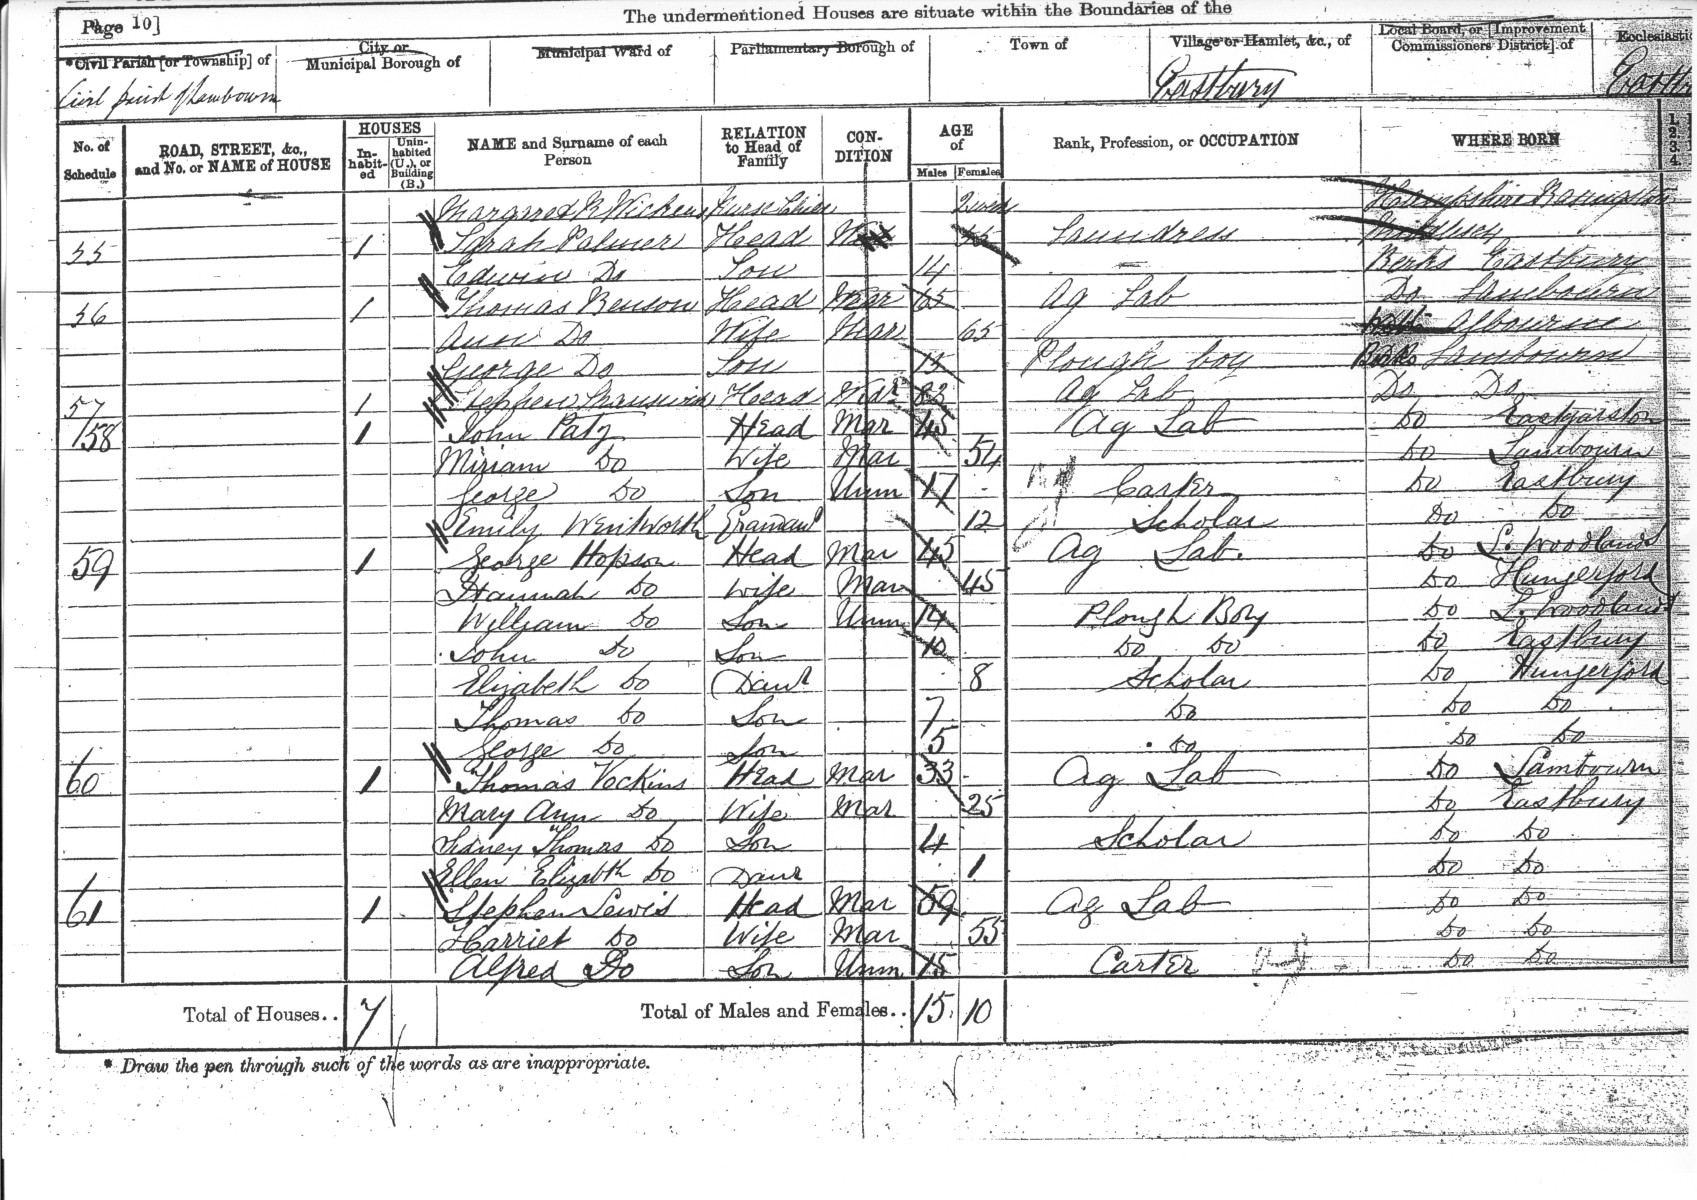 Page 10]
The undermentioned Houses are situate within the Boundaries of the
*Civil Parish [or Township] of City or Municipal Borough of Municipal Ward of Parliamentary Borough of Town of Village or Hamlet, &c., of Local Board, or [Improvement Commissioners District] of Ecclesiastic
Civil parish of Lambourn Eastbury Eastb
No. of Schedule ROAD, STREET, &c., and No. or NAME of HOUSE HOUSES In-habit-ed Unin-habited (U.), or Building (B.) NAME and Surname of each Person RELATION to Head of Family CON-DITION AGE of Males Females Rank, Profession, or OCCUPATION WHERE BORN
Margaret R Wickens Nurse Child Hampshire
55 1 Sarah Palmer Head Laundress
Edwin Do Son 14 Berks Eastbury
56 1 Thomas Benson Head Mar 65 Ag Lab Do Lambourn
Ann Do Wife Mar 65 Albourne
George Do Son 15 Plough boy Berks Lambourn
57 1 Stephen Head Widr 83 Ag Lab Do Do
58 1 John Head Mar 45 Ag Lab Do Eastgarston
Miriam Do Wife Mar 54 Do Lambourn
George Do Son Unm 17 Carter Do Eastbury
Emily Wentworth 12 Scholar Do Do
59 1 George Hopson Head Mar 45 Ag Lab. Do L. Woodlands
Hannah Do Wife Mar 45 Do Hungerford
William Do Son Unm 14 Plough Boy Do L. Woodlands
John Do Son 10 Do Do Do Eastbury
Elizabeth Do Daur 8 Scholar Do Hungerford
Thomas Do Son 7 Do Do Do
George Do Son 5 Do Do Do
60 1 Thomas Vockins Head Mar 33 Ag Lab Do Lambourn
Mary Ann Do Wife Mar 25 Do Eastbury
Sidney Thomas Do Son 4 Scholar Do Do
Ellen Elizabth Do Daur 1 Do Do
61 1 Stephen Lewis Head Mar 59 Ag Lab Do Do
Harriet Do Wife Mar 55 Do Do
Alfred Do Son Unm 15 Carter Do Do
Total of Houses.. 7 Total of Males and Females.. 15 10
* Draw the pen through such of the words as are inappropriate.